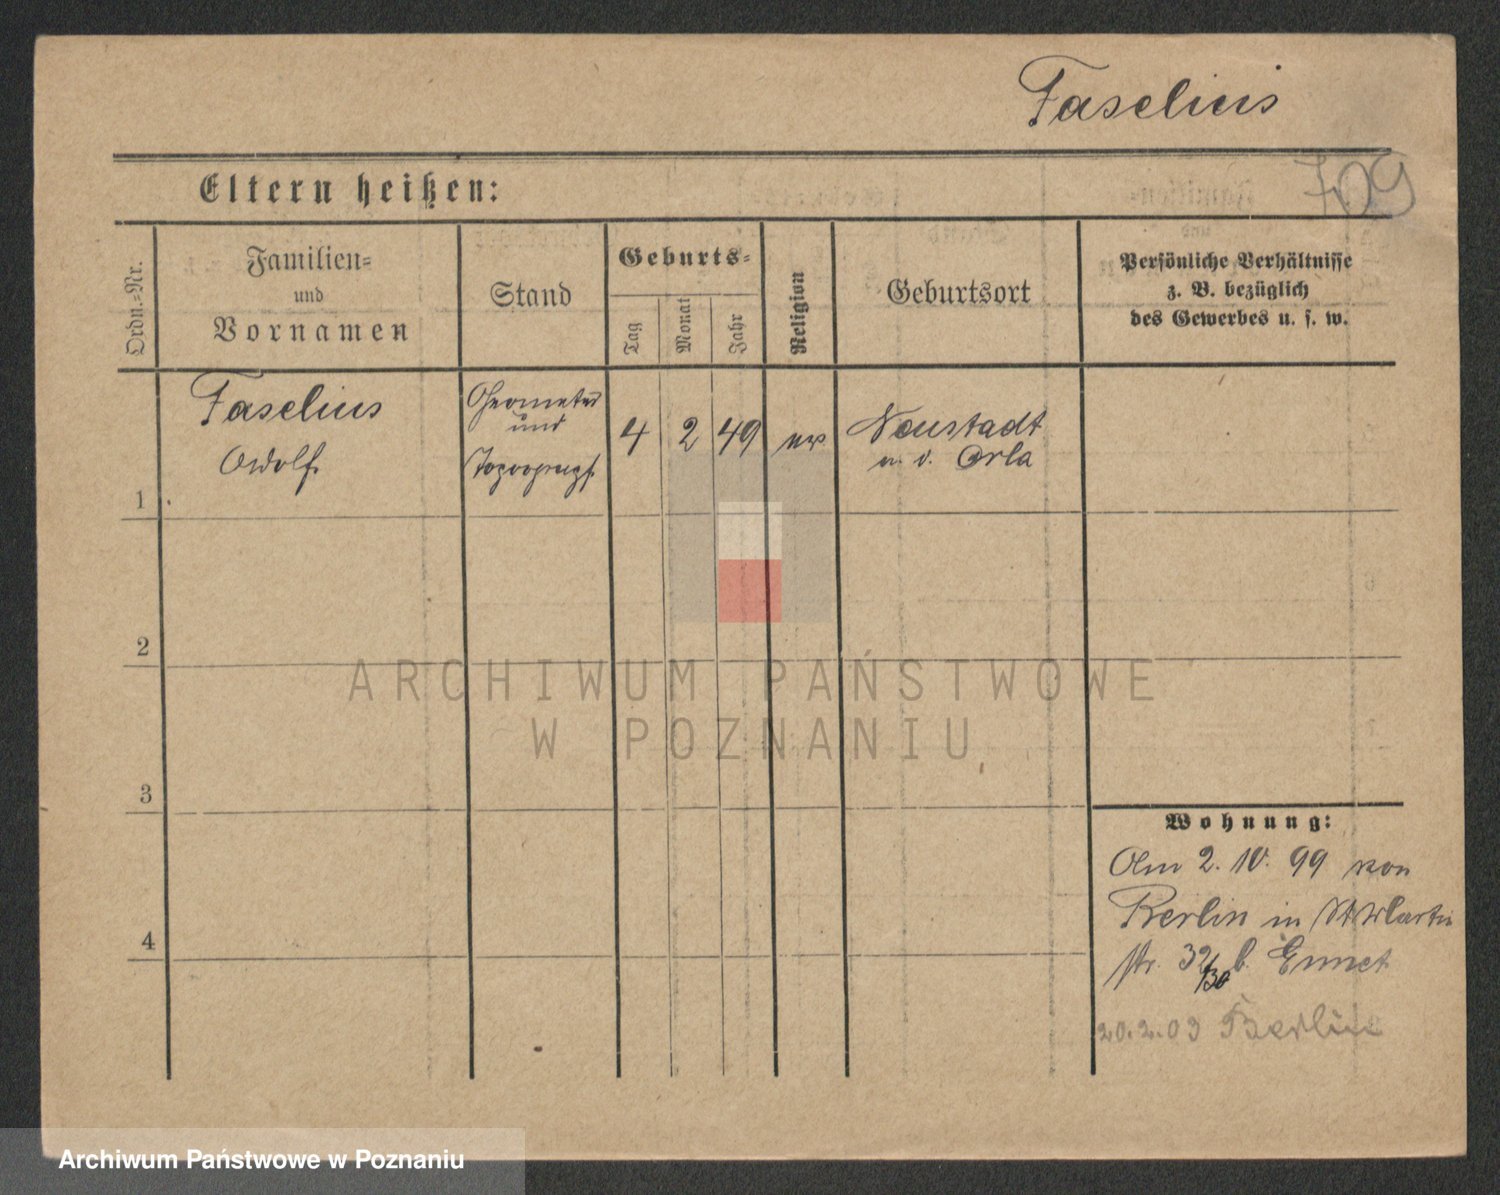 Faselius
709
Eltern heißen:
Ordn.-Nr.
Familien-
und
Vornamen
Stand
Geburts-
Tag
Monat
Jahr
Religion
Geburtsort
Persönliche Verhältnisse
z. B. bezüglich
des Gewerbes u. s. w.
1
Faselius
Adolf
Geometer
und
Topograph
4 2 49
ev
Neustadt
a. d. Orla
2
3
4
ARCHIWUM PAŃSTWOWE
W POZNANIU
Wohnung:
Am 2. 10. 99 von
Berlin in St Martin
str. 32/30 b.
20.2.03 Berlin
Archiwum Państwowe w Poznaniu